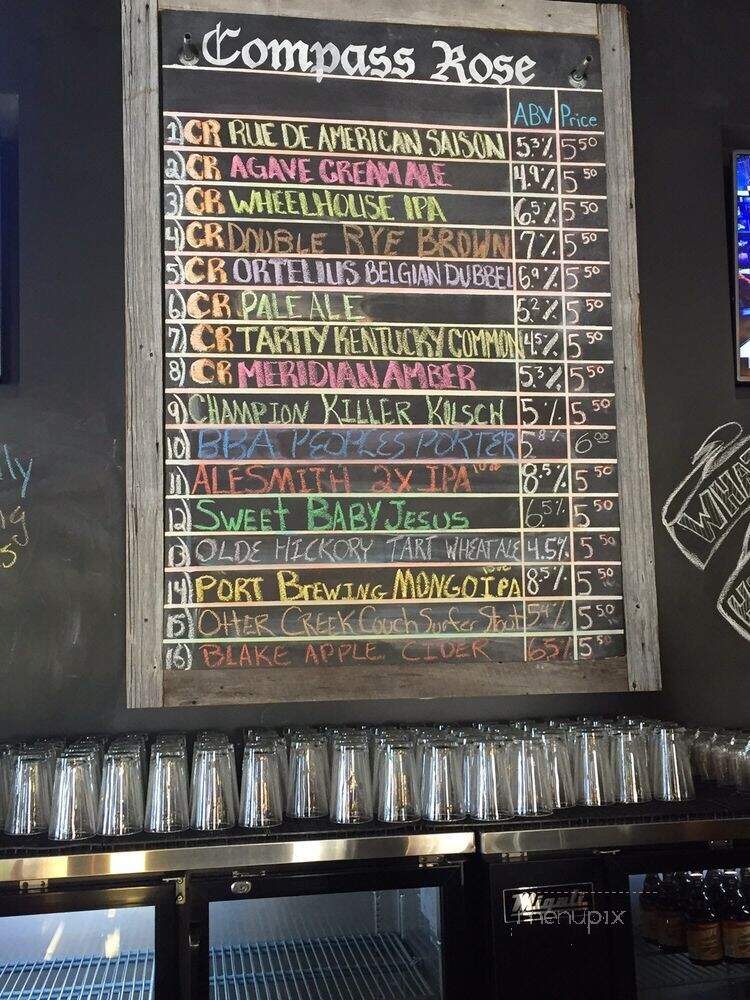 Compass Rose
ABV Price
1) CR RUE DE AMERICAN SAISON 5.3% 5 50
2) CR AGAVE CREAM ALE 4.9% 5 50
3) CR WHEELHOUSE IPA 6.5% 5 50
4) CR DOUBLE RYE BROWN 7% 5 50
5) CR ORTELIUS BELGIAN DUBBEL 6.9% 5 50
6) CR PALE ALE 5.2% 5 50
7) CR TARTTY KENTUCKY COMMON 4.5% 5 50
8) CR MERIDIAN AMBER 5.3% 5 50
9) CHAMPION KILLER KÖLSCH 5% 5 50
10) BBA PEOPLES PORTER 5.8% 6 00
11) ALESMITH 2X IPA 10oz 8.5% 5 50
12) SWEET BABY JESUS 6.5% 5 50
13) OLDE HICKORY TART WHEAT ALE 4.5% 5 50
14) PORT BREWING MONGO IPA 10oz 8.5% 5 50
15) OTTER CREEK Couch Surfer Stout 5.4% 5 50
16) BLAKE APPLE CIDER 6.5% 5 50
WHAT
Migali
menupix